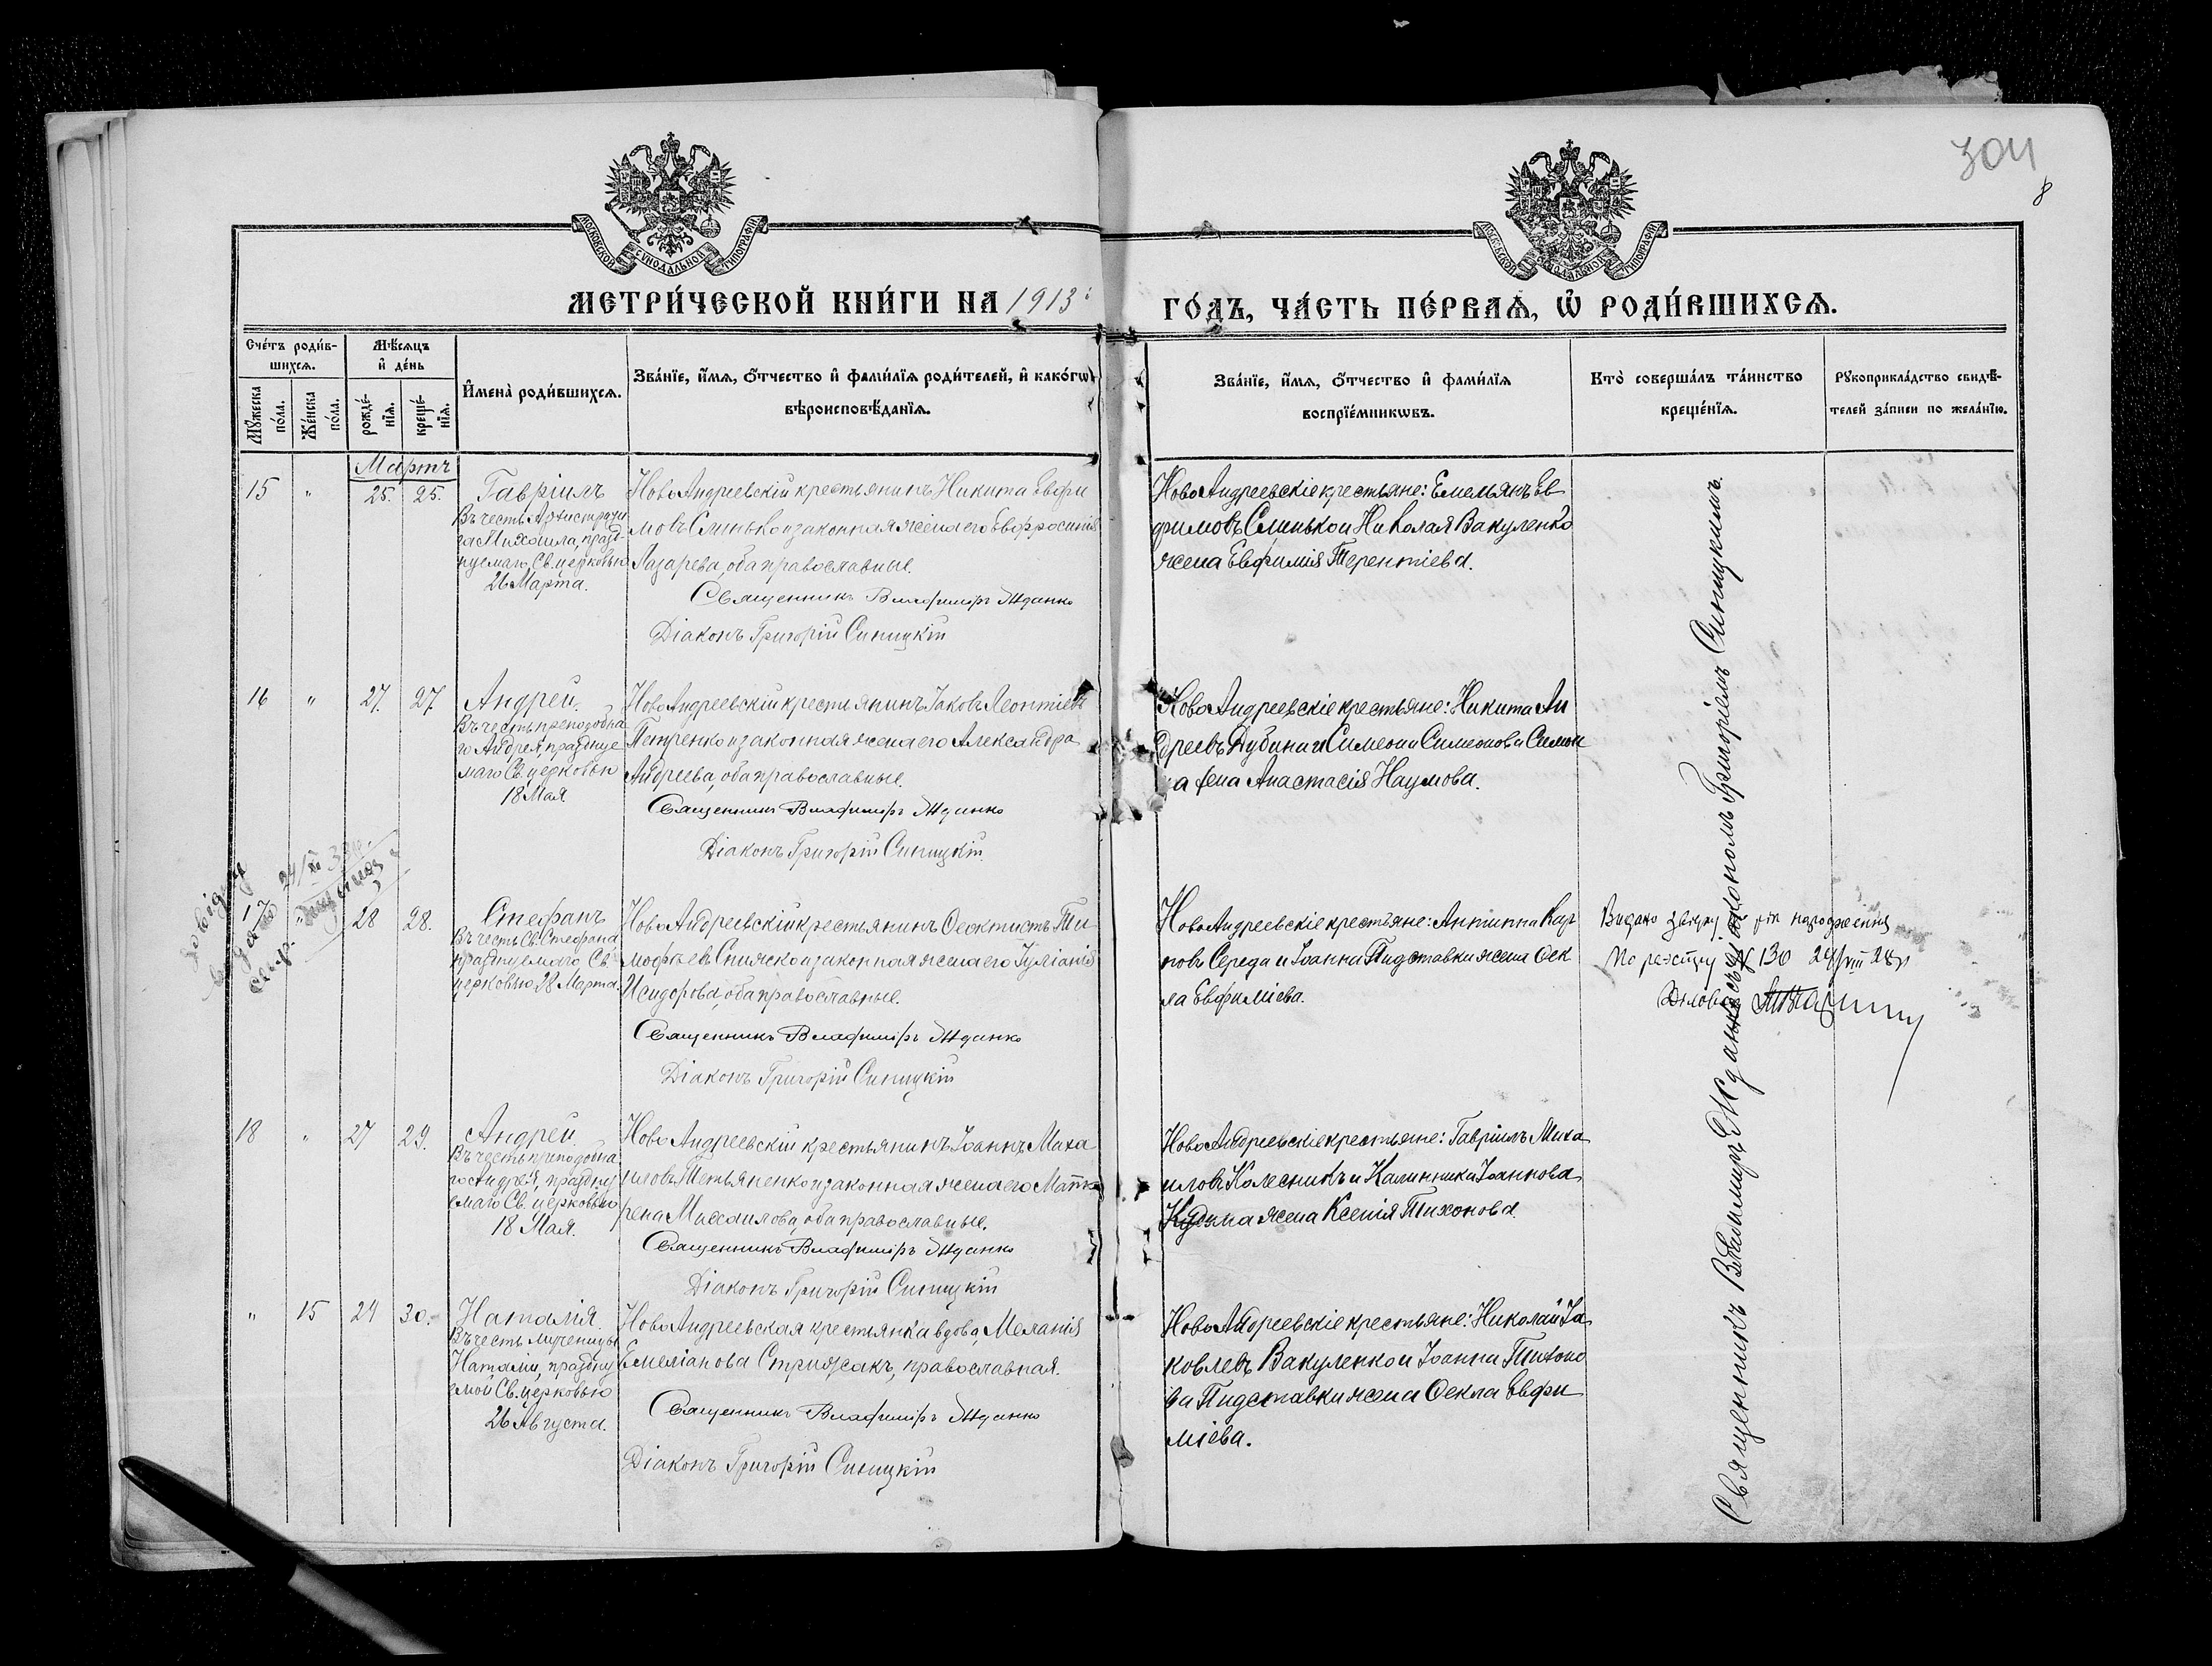 304
8
МОСКОВСКОЙ СѴНОДАЛЬНОЙ ТИПОГРАФІИ
МОСКОВСКОЙ СѴНОДАЛЬНОЙ ТИПОГРАФІИ
МЕТРИ́ЧЕСКОЙ КНИ́ГИ НА 1913
ГО́ДЪ, ЧА́СТЬ ПЕ́РВАѦ, Ѡ҆ РОДИ́ВШИХСѦ.
Сче́тъ роди́в-
шихсѧ.
Мꙋ́жеска по́ла.
Же́нска по́ла.
Мѣ́сѧцъ
и҆ де́нь
рожде́-
нїѧ.
креще́-
нїѧ.
И҆мена̀ роди́вшихсѧ.
Зва́нїе, и҆́мѧ, ѻ҆́тчество и҆ фами́лїѧ роди́телей, и҆ како́гѡ
вѣроисповѣ́данїѧ.
Зва́нїе, и҆́мѧ, ѻ҆́тчество и҆ фами́лїѧ
воспрїе́мникѡвъ.
Кто̀ соверша́лъ та́инство
креще́нїѧ.
Рꙋкоприкла́дство свидѣ́-
телей за́писи по жела́нїю.
Мартъ
15 " 25. 25.
Гавріилъ
Въ честь Архистрати
га Михаила, празд-
нуемаго Св. церковью
26 Марта.
Ново Андреевскій крестьянинъ Никита Евфи
мовъ Слинько и законная жена его Евфросинія
Лазарева, оба православные.
Священникъ Владиміръ Жданко
Діаконъ Григорій Синицкій
Ново Андреевскіе крестьяне: Емельянъ Ев
фимовъ Слинько и Николая Вакуленко
жена Евфимія Терентіева.
16 " 27. 27
Андрей.
Въ честь преподобна
го Андрея, праздную
маго Св. церковью
18 Мая.
Ново Андреевскій крестьянинъ Іаковъ Леонтіевъ
Петренко и законная жена его Александра
Андреева, оба православные.
Священникъ Владиміръ Жданко
Діаконъ Григорій Синицкій.
Ново Андреевскіе крестьяне: Никита Ан
дреевъ Дубина и Симеона Симеонова
жена Анастасія Наумова.
17 " 28 28.
Стефанъ
Въ честь Св. Стефана
празднуемаго Св.
церковью 28 Марта.
Ново Андреевскій крестьянинъ Ѳеоктистъ Ти
мофѣевъ и законная жена его Іуліанія
Исидорова, оба православные.
Священникъ Владиміръ Жданко
Діаконъ Григорій Синицкій
Ново Андреевскіе крестьяне: Антипа Кар
повъ Середа и Іоанна Пидставки жена Ѳек
ла Евфиміева.
Видано народження
По 130
18 " 27 29.
Андрей.
Въ честь преподобна
го Андрея, праздну
емаго Св. церковью
18 Мая.
Ново Андреевскій крестьянинъ Іоаннъ Миха
иловъ Тетьяненко и законная жена его Мат
рена Михаилова, оба православные.
Священникъ Владиміръ Жданко
Діаконъ Григорій Синицкій
Ново Андреевскіе крестьяне: Гавріилъ Миха
иловъ Колесникъ и Калинника Іоаннова
жена Ксенія Тихонова.
" 15 24 30.
Наталія.
Въ честь мученицы
Наталіи, праздну
емой Св. церковью
26 Августа.
Ново Андреевская крестьянка вдова, Меланія
Емеліанова Стрижакъ, православная.
Священникъ Владиміръ Жданко
Діаконъ Григорій Синицкій
Ново Андреевскіе крестьяне: Николай Іа
ковлевъ Вакуленко и Іоанна Тихоно
ва Пидставки жена Ѳекла Евфи
міева.
Священникъ Владиміръ Жданко съ діакономъ Григоріемъ Синицкимъ.